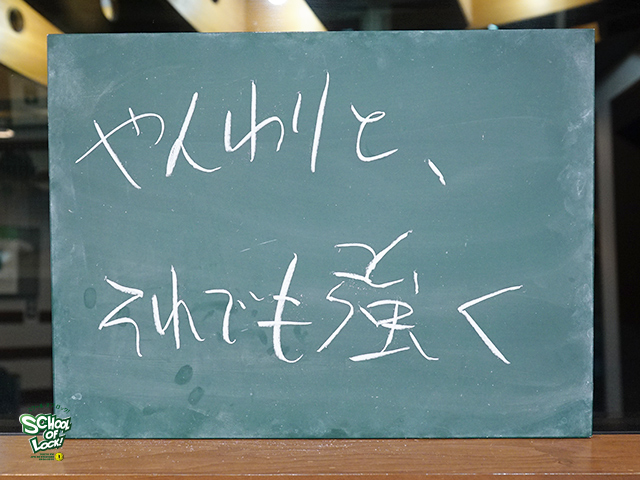 やんわりと、
それでも強く
SCHOOL
OF
LOCK!